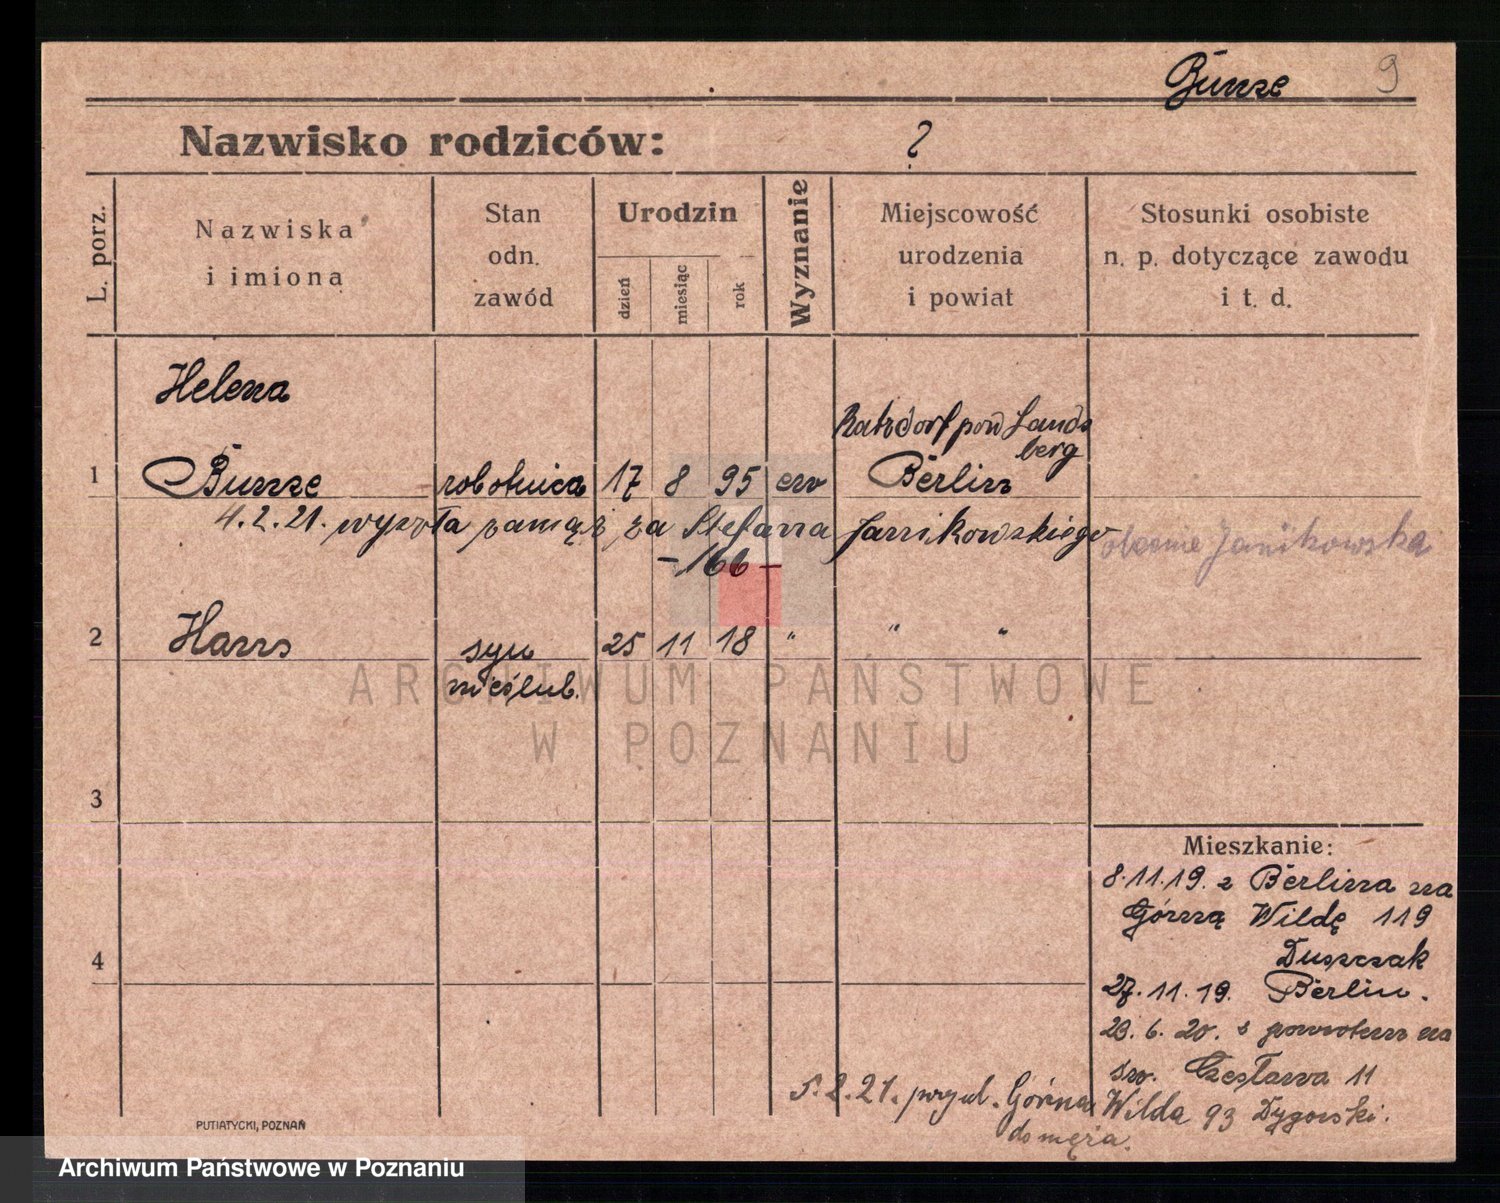 Bunze 9
Nazwisko rodziców: ?
L. porz.
Nazwiska
i imiona
Stan
odn.
zawód
Urodzin
dzień miesiąc rok
Wyznanie
Miejscowość
urodzenia
i powiat
Stosunki osobiste
n. p. dotyczące zawodu
i t. d.
Helena
Ratzdorf pow Lands
berg
1 Bunze robotnica 17 8 95 ew Berlin
4.2.21. wyszła zamąż za Stefana Janikowskiego
obecnie Janikowska
-166-
2 Hans syn 25 11 18 " " "
nieślub.
3
4
Mieszkanie:
8.11.19. z Berlina na
Górną Wildę 119
Duszczak
27.11.19. Berlin.
23.6.20. z powrotem na
św. Czesława 11
5.2.21. przyul. Górna Wilda 93 Dygorski.
do męża.
PUTIATYCKI, POZNAŃ
ARCHIWUM PAŃSTWOWE
W POZNANIU
Archiwum Państwowe w Poznaniu